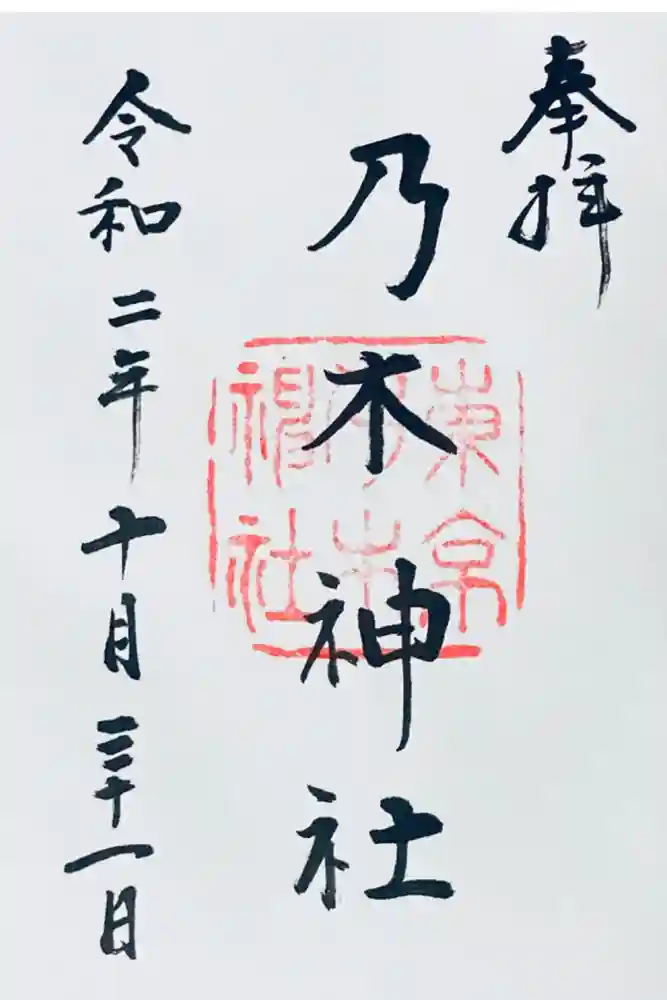 奉拝
乃木神社
東京
乃木
神社
令和二年十月三十一日